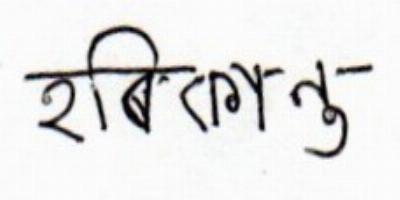 হৰিকান্ত